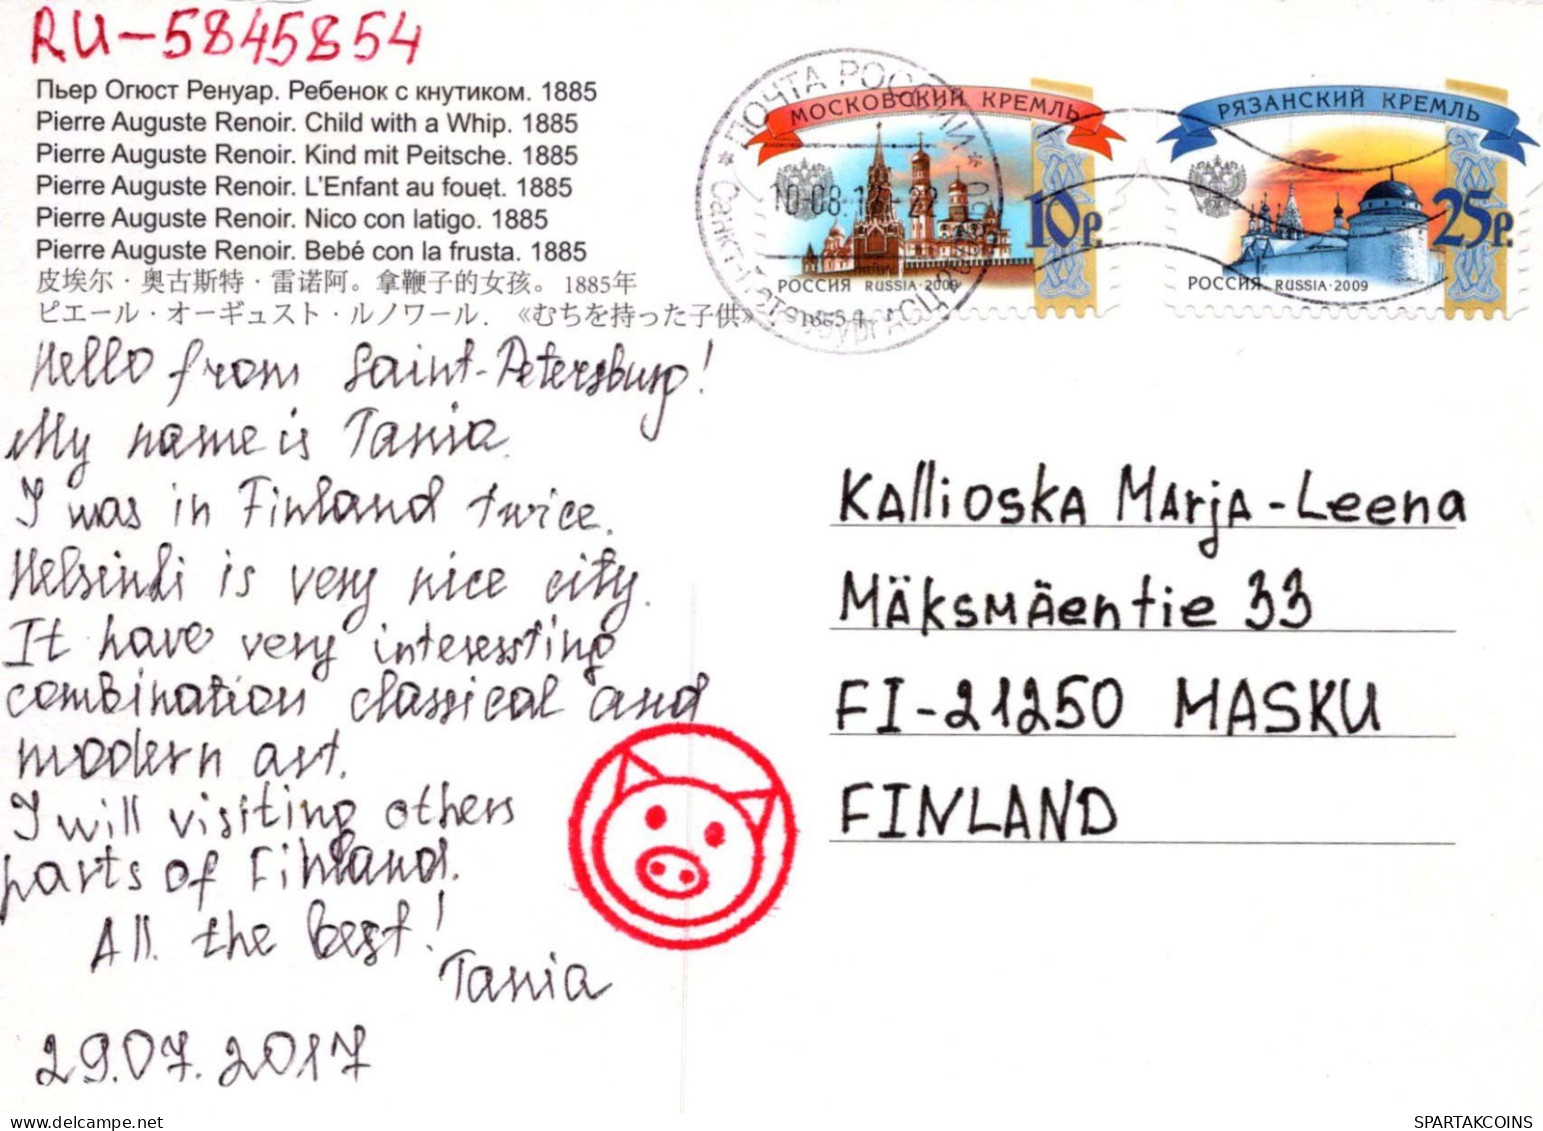 RU-5845854
Пьер Огюст Ренуар. Ребенок с кнутиком. 1885
Pierre Auguste Renoir. Child with a Whip. 1885
Pierre Auguste Renoir. Kind mit Peitsche. 1885
Pierre Auguste Renoir. L'Enfant au fouet. 1885
Pierre Auguste Renoir. Nico con latigo. 1885
Pierre Auguste Renoir. Bebé con la frusta. 1885
皮埃尔·奥古斯特·雷诺阿。拿鞭子的女孩。1885年
ピエール・オーギュスト・ルノワール. 《むちを持った子供》. 1885年
Hello from Saint-Petersburg!
My name is Tania.
I was in Finland twice.
Helsinki is very nice city.
It have very interessting
combination classical and
modern art.
I will visiting others
parts of Finland.
All the best!
Tania
29.07.2017
ПОЧТА РОССИИ
10-08.17-22
Санкт-Петербург АСЦ
МОСКОВСКИЙ КРЕМЛЬ
10Р.
РОССИЯ RUSSIA·2009
РЯЗАНСКИЙ КРЕМЛЬ
25Р.
РОССИЯ RUSSIA·2009
Kallioska Marja-Leena
Mäksmäentie 33
FI-21250 MASKU
FINLAND
SPARTAKCOINS